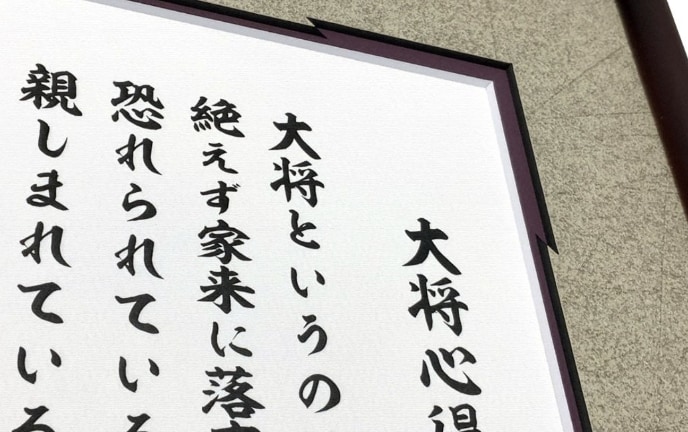 大将心得
大将というの
絶えず家来に落
恐れられている
親しまれている